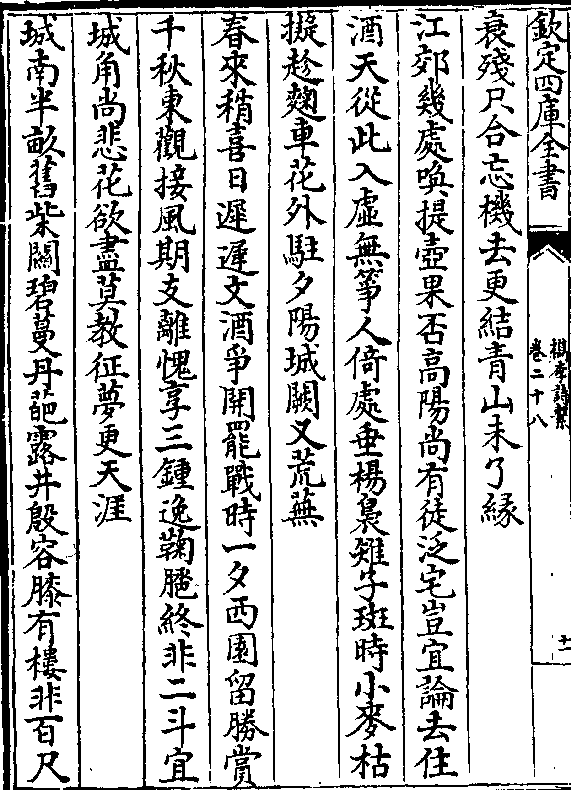 欽定四庫全書
卷二十八
十一
衰殘只合忘機去更結青山未了緣
江郊幾處喚提壺果否高陽尚有徒泛宅豈宜論去住
酒天從此入虛無箏人倚處垂楊裊雉子斑時小麥枯
擬趁麴車花外駐夕陽城闕又荒蕪
春來稍喜日遲遲文酒爭開罷戰時一夕西園留勝賞
千秋東觀接風期支離愧享三鍾逸鞠䏶終非二斗宜
城角尚悲花欲盡莫教征夢更天涯
城南半畝舊柴關碧蔓丹葩露井殷容膝有樓非百尺